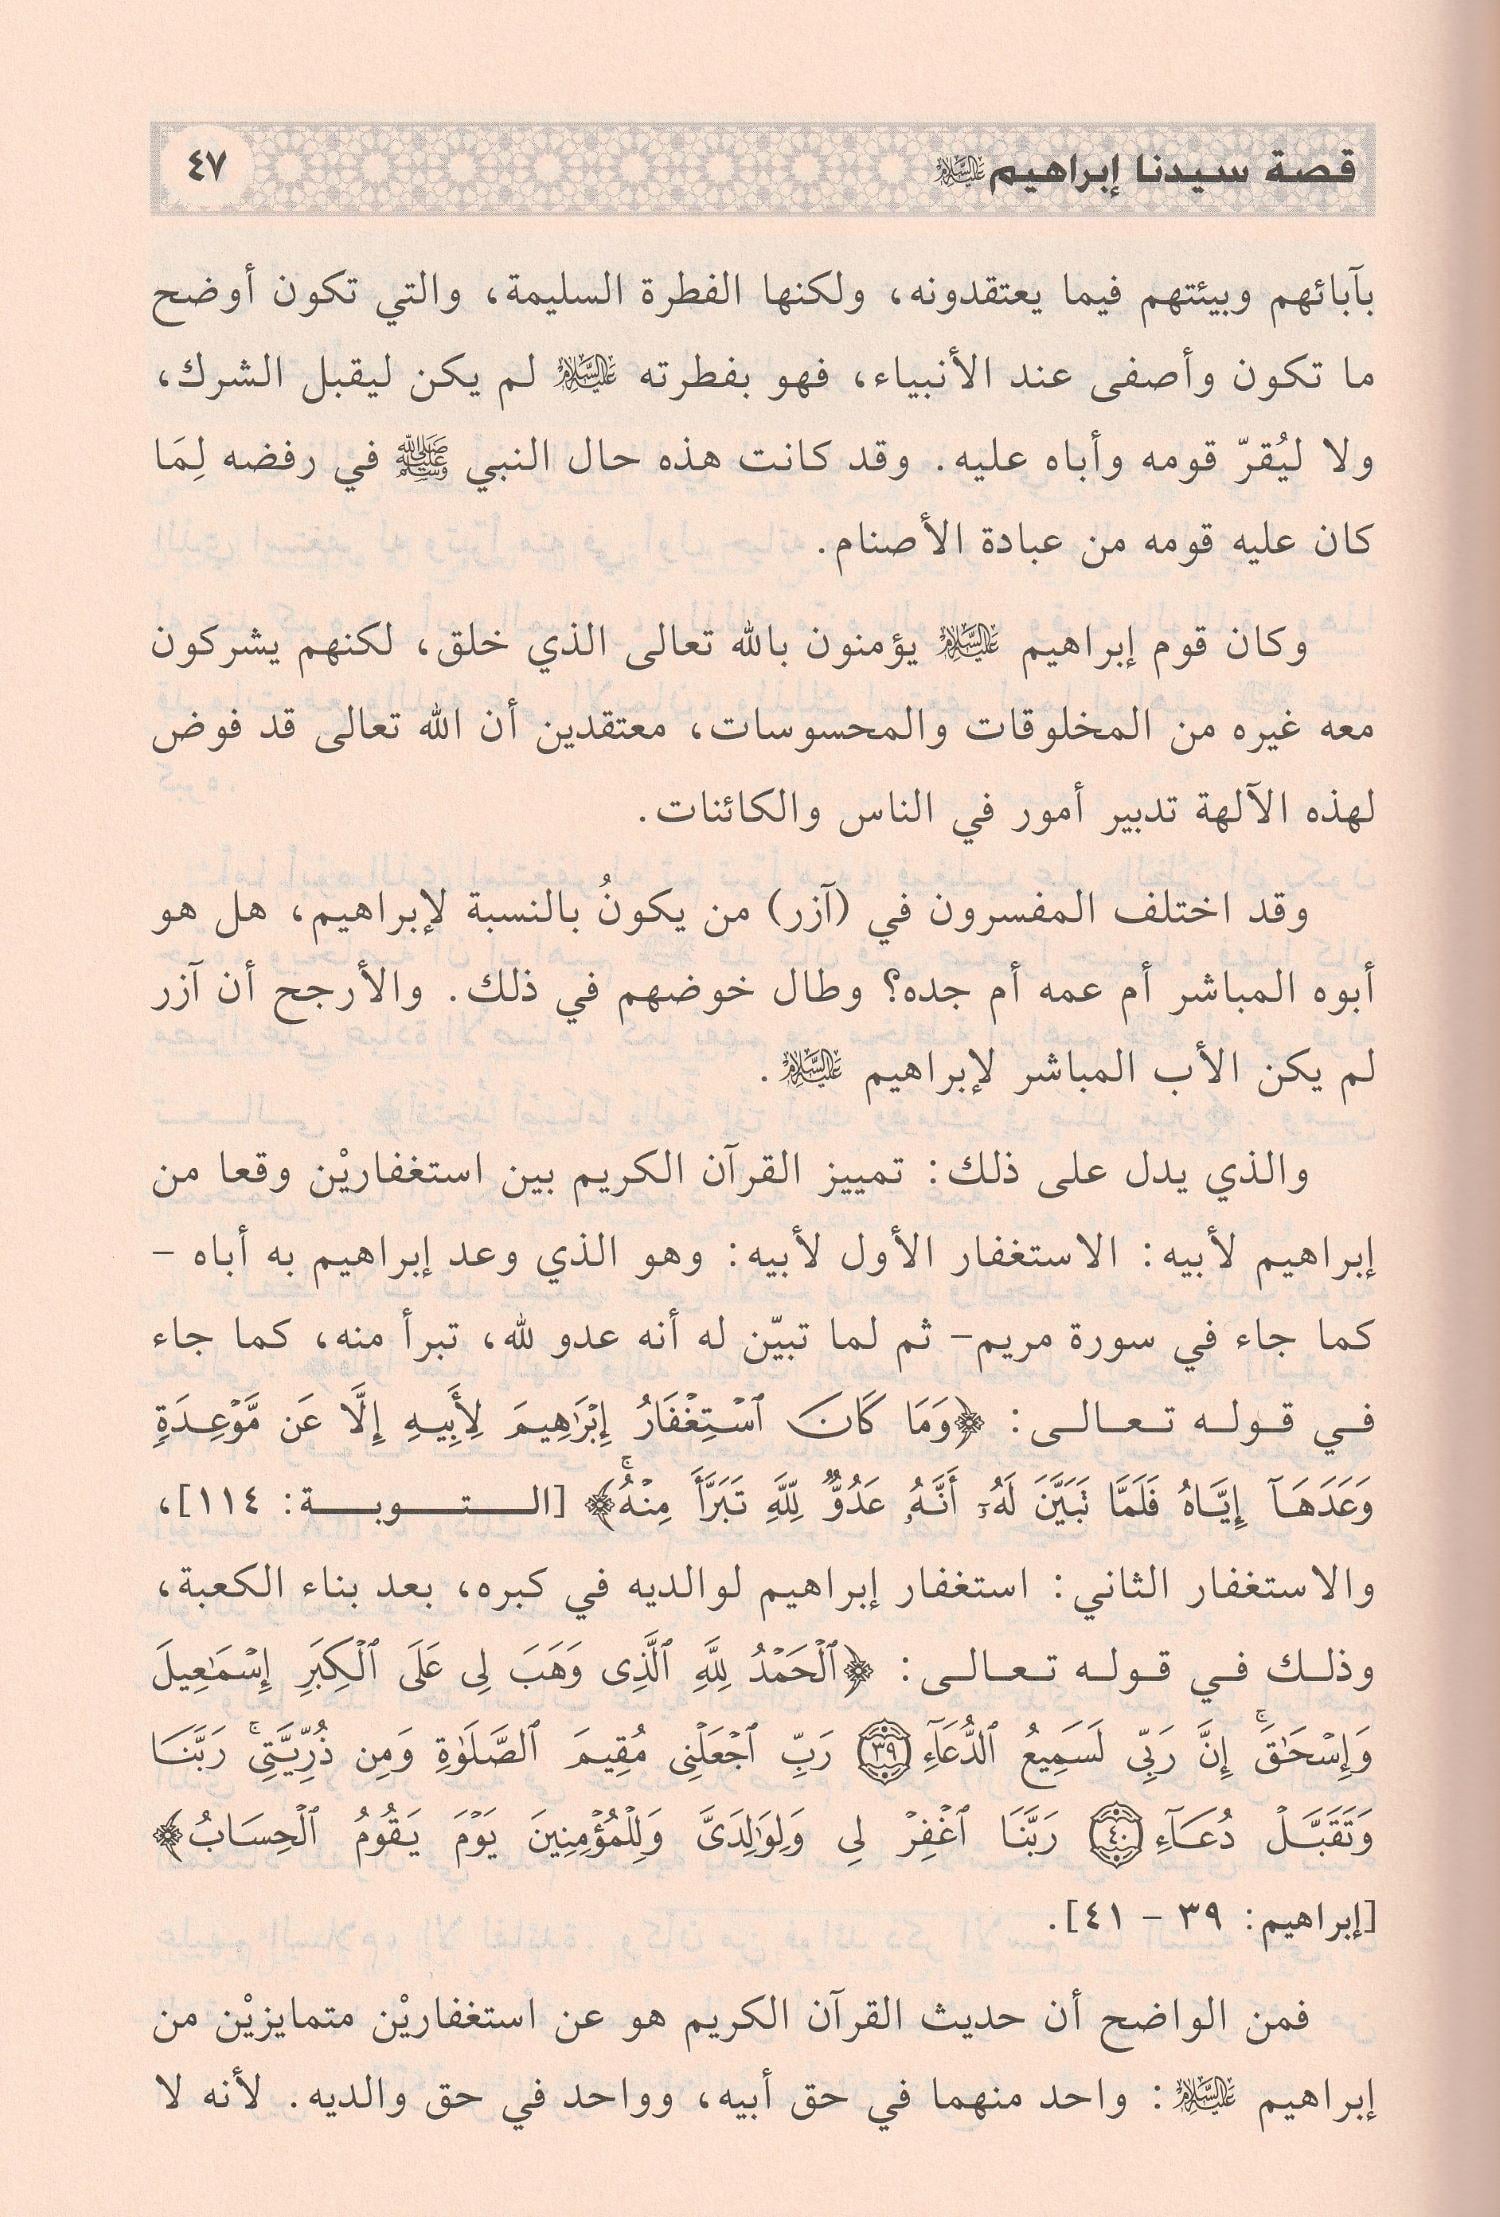 قصة سيدنا إبراهيم عليه السلام ٤٧
بآبائهم وبيئتهم فيما يعتقدونه، ولكنها الفطرة السليمة، والتي تكون أوضح
ما تكون وأصفى عند الأنبياء، فهو بفطرته عليه السلام لم يكن ليقبل الشرك،
ولا ليُقرّ قومه وأباه عليه. وقد كانت هذه حال النبي ﷺ في رفضه لِمَا
كان عليه قومه من عبادة الأصنام.
وكان قوم إبراهيم عليه السلام يؤمنون بالله تعالى الذي خلق، لكنهم يشركون
معه غيره من المخلوقات والمحسوسات، معتقدين أن الله تعالى قد فوض
لهذه الآلهة تدبير أمور في الناس والكائنات.
وقد اختلف المفسرون في (آزر) من يكونُ بالنسبة لإبراهيم، هل هو
أبوه المباشر أم عمه أم جده؟ وطال خوضهم في ذلك. والأرجح أن آزر
لم يكن الأب المباشر لإبراهيم عليه السلام.
والذي يدل على ذلك: تمييز القرآن الكريم بين استغفاريْن وقعا من
إبراهيم لأبيه: الاستغفار الأول لأبيه: وهو الذي وعد إبراهيم به أباه -
كما جاء في سورة مريم- ثم لما تبيّن له أنه عدو لله، تبرأ منه، كما جاء
في قوله تعالى: ﴿وَمَا كَانَ ٱسْتِغْفَارُ إِبْرَٰهِيمَ لِأَبِيهِ إِلَّا عَن مَّوْعِدَةٍ
وَعَدَهَآ إِيَّاهُ فَلَمَّا تَبَيَّنَ لَهُۥٓ أَنَّهُۥ عَدُوٌّ لِّلَّهِ تَبَرَّأَ مِنْهُ ۚ﴾ [التوبة: ١١٤]،
والاستغفار الثاني: استغفار إبراهيم لوالديه في كبره، بعد بناء الكعبة،
وذلك في قوله تعالى: ﴿ٱلْحَمْدُ لِلَّهِ ٱلَّذِى وَهَبَ لِى عَلَى ٱلْكِبَرِ إِسْمَٰعِيلَ
وَإِسْحَٰقَ ۚ إِنَّ رَبِّى لَسَمِيعُ ٱلدُّعَآءِ ٣٩ رَبِّ ٱجْعَلْنِى مُقِيمَ ٱلصَّلَوٰةِ وَمِن ذُرِّيَّتِى ۚ رَبَّنَا
وَتَقَبَّلْ دُعَآءِ ٤٠ رَبَّنَا ٱغْفِرْ لِى وَلِوَٰلِدَىَّ وَلِلْمُؤْمِنِينَ يَوْمَ يَقُومُ ٱلْحِسَابُ﴾
[إبراهيم: ٣٩ - ٤١].
فمن الواضح أن حديث القرآن الكريم هو عن استغفاريْن متمايزيْن من
إبراهيم عليه السلام: واحد منهما في حق أبيه، وواحد في حق والديه. لأنه لا